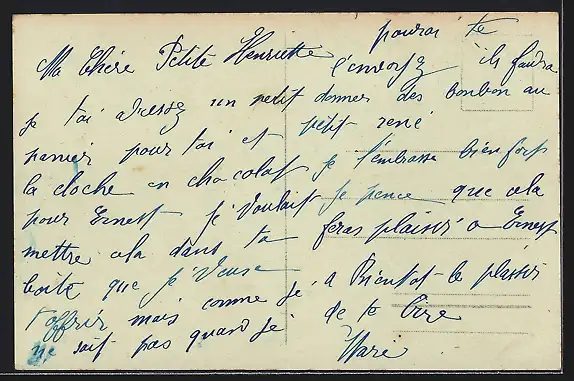 Ma Chère Petite Henriette
je tai adressez un petit
panier pour toi et
la cloche en chocolat
pour Ernest je voulait
mettre cela dans ta
boite que je veuse
t'offrir mais comme je
ne sait pas quand je
pourai te
l'envoyez ils faudra
donner des bonbon au
petit rené
je t'embrasse bien fort
je pence que cela
feras plaisir a Ernest
a Bientot le plaisir
de te lire